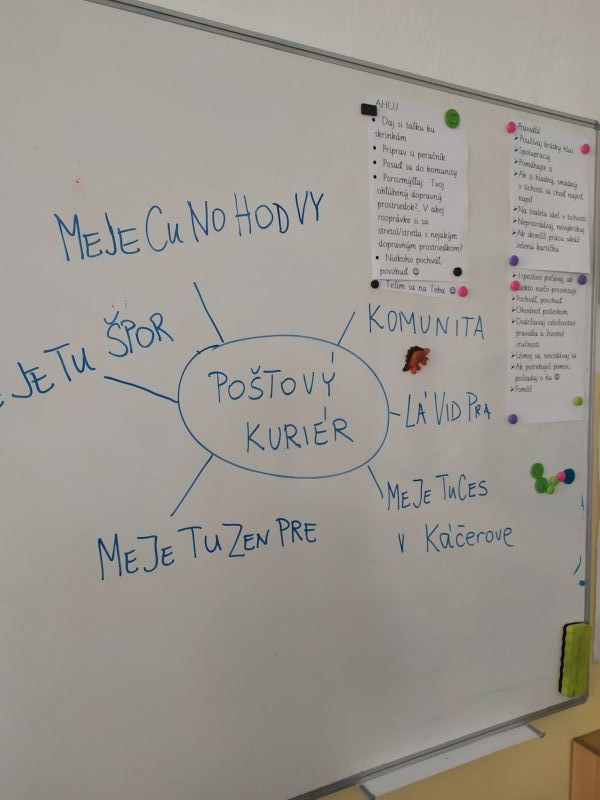 MEJECUNOHODVY
JETU ŠPOR
POŠTOVÝ
KURIÉR
KOMUNITA
LÁVIDPRA
MEJETUCES
v Káčerove
MEJETUZENPRE
AHOJ
• Daj si tašku ku
skrinkám
• Priprav si peračník
• Posaď sa do komunity
• Porozmýšľaj: Tvoj
obľúbený dopravný
prostriedok?, V akej
rozprávke si sa
stretol/stretla s nejakým
dopravným prostriedkom?
• Niekoho pochváľ,
povzbuď ☺
• Teším sa na Teba ☺
Pravidlá:
➤Používaj krátky hlas
➤Spolupracuj
➤Pomáhajte si
➤Ak si hladný, smädný
v tichosti sa choď najesť,
napiť
➤Na toaletu ideš v tichosti
➤Neprerážaj, nevykrikuj
➤Ak skončíš prácu ukáž
zelenú kartičku
➤Trpezlivo počúvaj, ak
niekto niečo prezentuje
➤Pochváľ, povzbuď
➤Ohodnoť potleskom
➤Dodržiavaj celoživotné
pravidlá a životné
zručnosti
➤Usmej sa, nevzdávaj sa
➤Ak potrebuješ pomoc,
požiadaj o ňu ☺